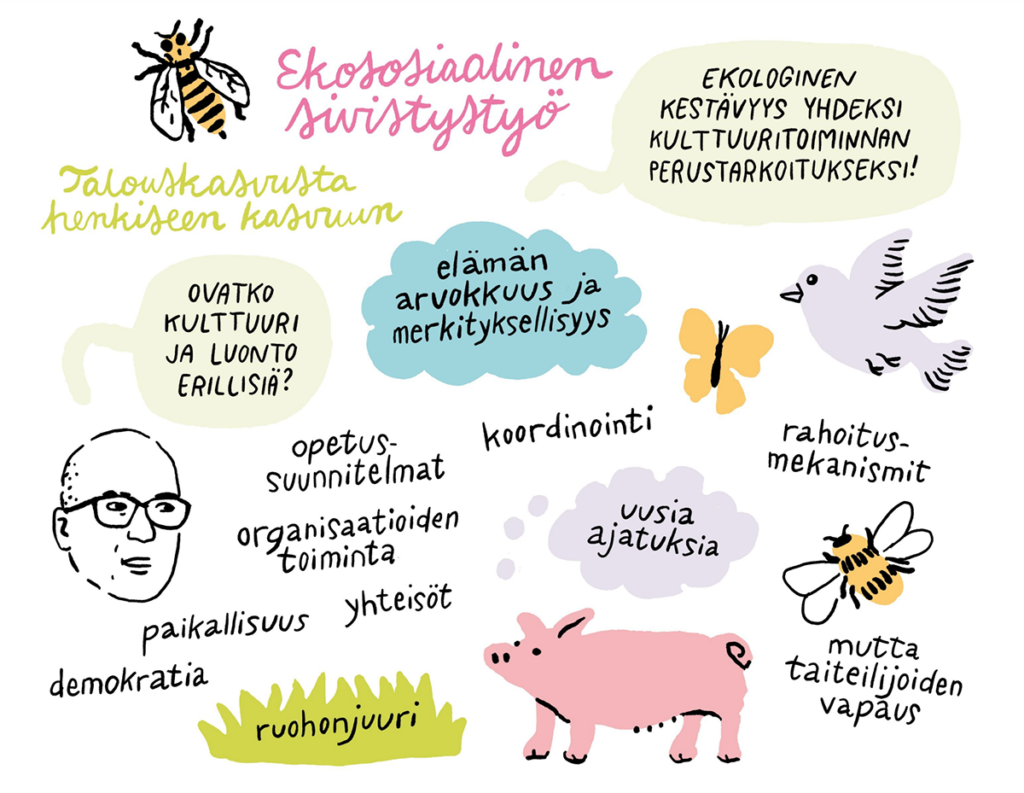 Ekososiaalinen
sivistystyö
EKOLOGINEN
KESTÄVYYS YHDEKSI
KULTTUURITOIMINNAN
PERUSTARKOITUKSEKSI!
Talouskasvusta
henkiseen kasvuun
elämän
arvokkuus ja
merkityksellisyys
OVATKO
KULTTUURI
JA LUONTO
ERILLISIÄ?
opetus-
suunnitelmat
koordinointi
rahoitus-
mekanismit
organisaatioiden
toiminta
uusia
ajatuksia
yhteisöt
paikallisuus
demokratia
ruohonjuuri
mutta
taiteilijoiden
vapaus